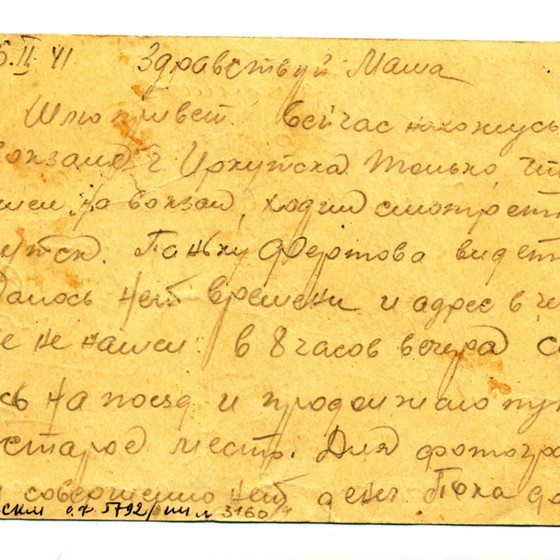 5.II.41 Здравствуй Маша
Шлю привет. Сейчас нахожусь
вокзале г Иркутска. Только, что
на вокзал, ходил смотреть
утск. Паньку Фертова видеть
далось нет времени и адрес в че
не нашел. в 8 часов вечера с
сь на поезд и продолжаю пу
старое месть. Для фотогра
совершенно нет денг. Пока до
скм о.ф 5792/ 3160/4